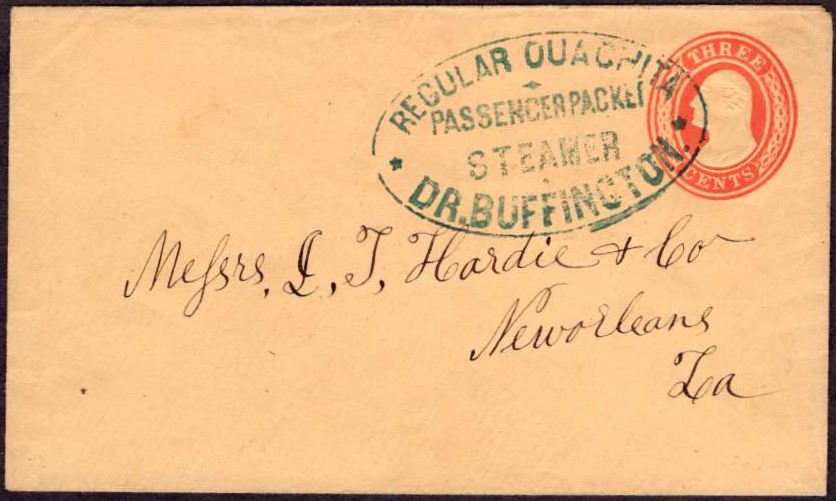 REGULAR OUACHITA
PASSENGER PACKET
STEAMER
DR. BUFFINGTON.
THREE
CENTS
Messrs, J, T, Hardie & Co
New orleans
La